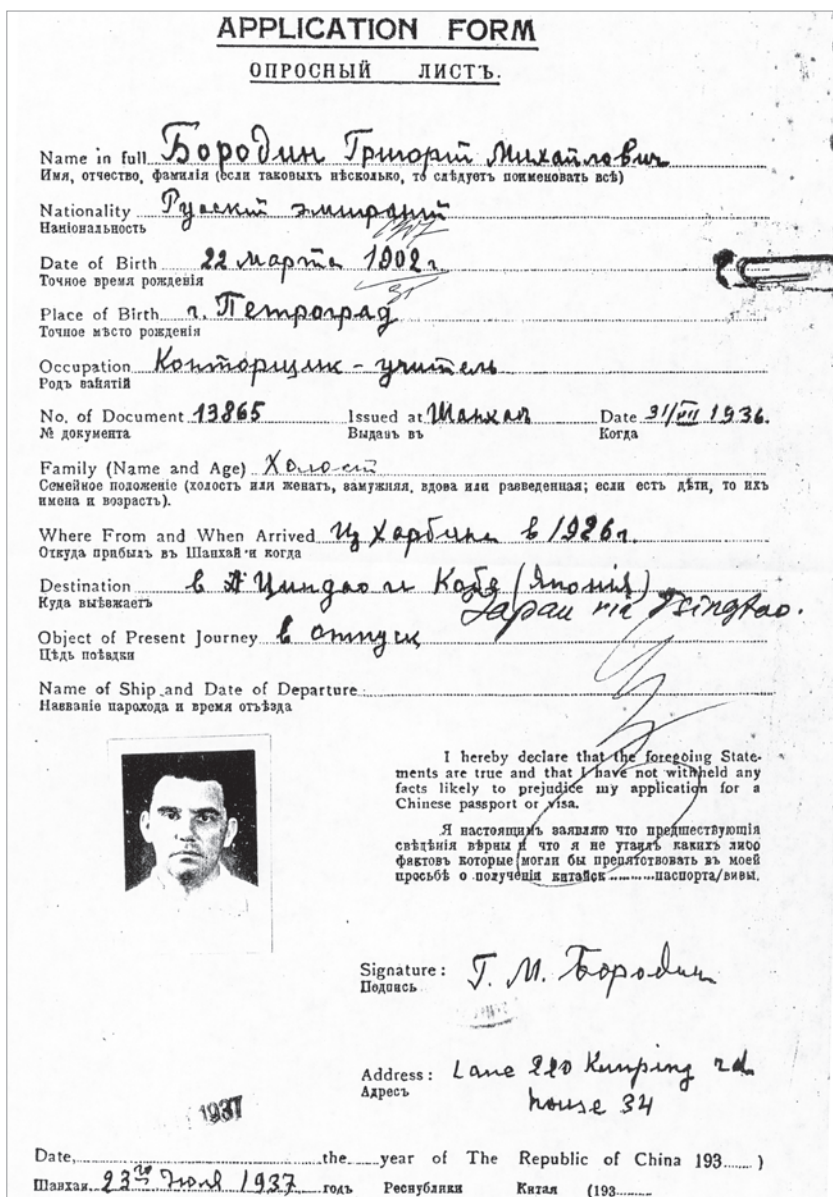 APPLICATION FORM
ОПРОСНЫЙ ЛИСТЪ.
Name in full Бородин Григорій Михайлович
Имя, отчество, фамилія (если таковыхъ нѣсколько, то слѣдуетъ поименовать всѣ)
Nationality Руский эмигрант
Національность
Date of Birth 22 марта 1902 г.
Точное время рожденія
Place of Birth г. Петроград
Точное мѣсто рожденія
Occupation Конторщик - учитель
Родъ занятій
No. of Document 13865 Issued at Шанхай Date 31/VII 1936.
№ документа Выданъ въ Когда
Family (Name and Age) Холост
Семейное положеніе (холостъ или женатъ, замужняя, вдова или разведенная; если есть дѣти, то ихъ
имена и возрастъ).
Where From and When Arrived Из Харбина в 1926 г.
Откуда прибылъ въ Шанхай и когда
Destination в Циндао и Кобэ (Японія)
Japan via Tsingtao.
Куда выѣзжаетъ
Object of Present Journey в отпуск
Цѣль поѣздки
Name of Ship and Date of Departure
Названіе парохода и время отъѣзда
I hereby declare that the foregoing State-
ments are true and that I have not withheld any
facts likely to prejudice my application for a
Chinese passport or visa.
Я настоящимъ заявляю что предшествующія
свѣдѣнія вѣрны и что я не утаилъ какихъ либо
фактовъ которые могли бы препятствовать въ моей
просьбѣ о полученіи китайск.........паспорта/визы.
Signature: Г. М. Бородин
Подпись
Address: Lane 220 Kunping rd
Адресъ house 34
1937
Date, the year of The Republic of China 193 )
Шанхай 23го Июля 1937 годъ Республики Китая (193